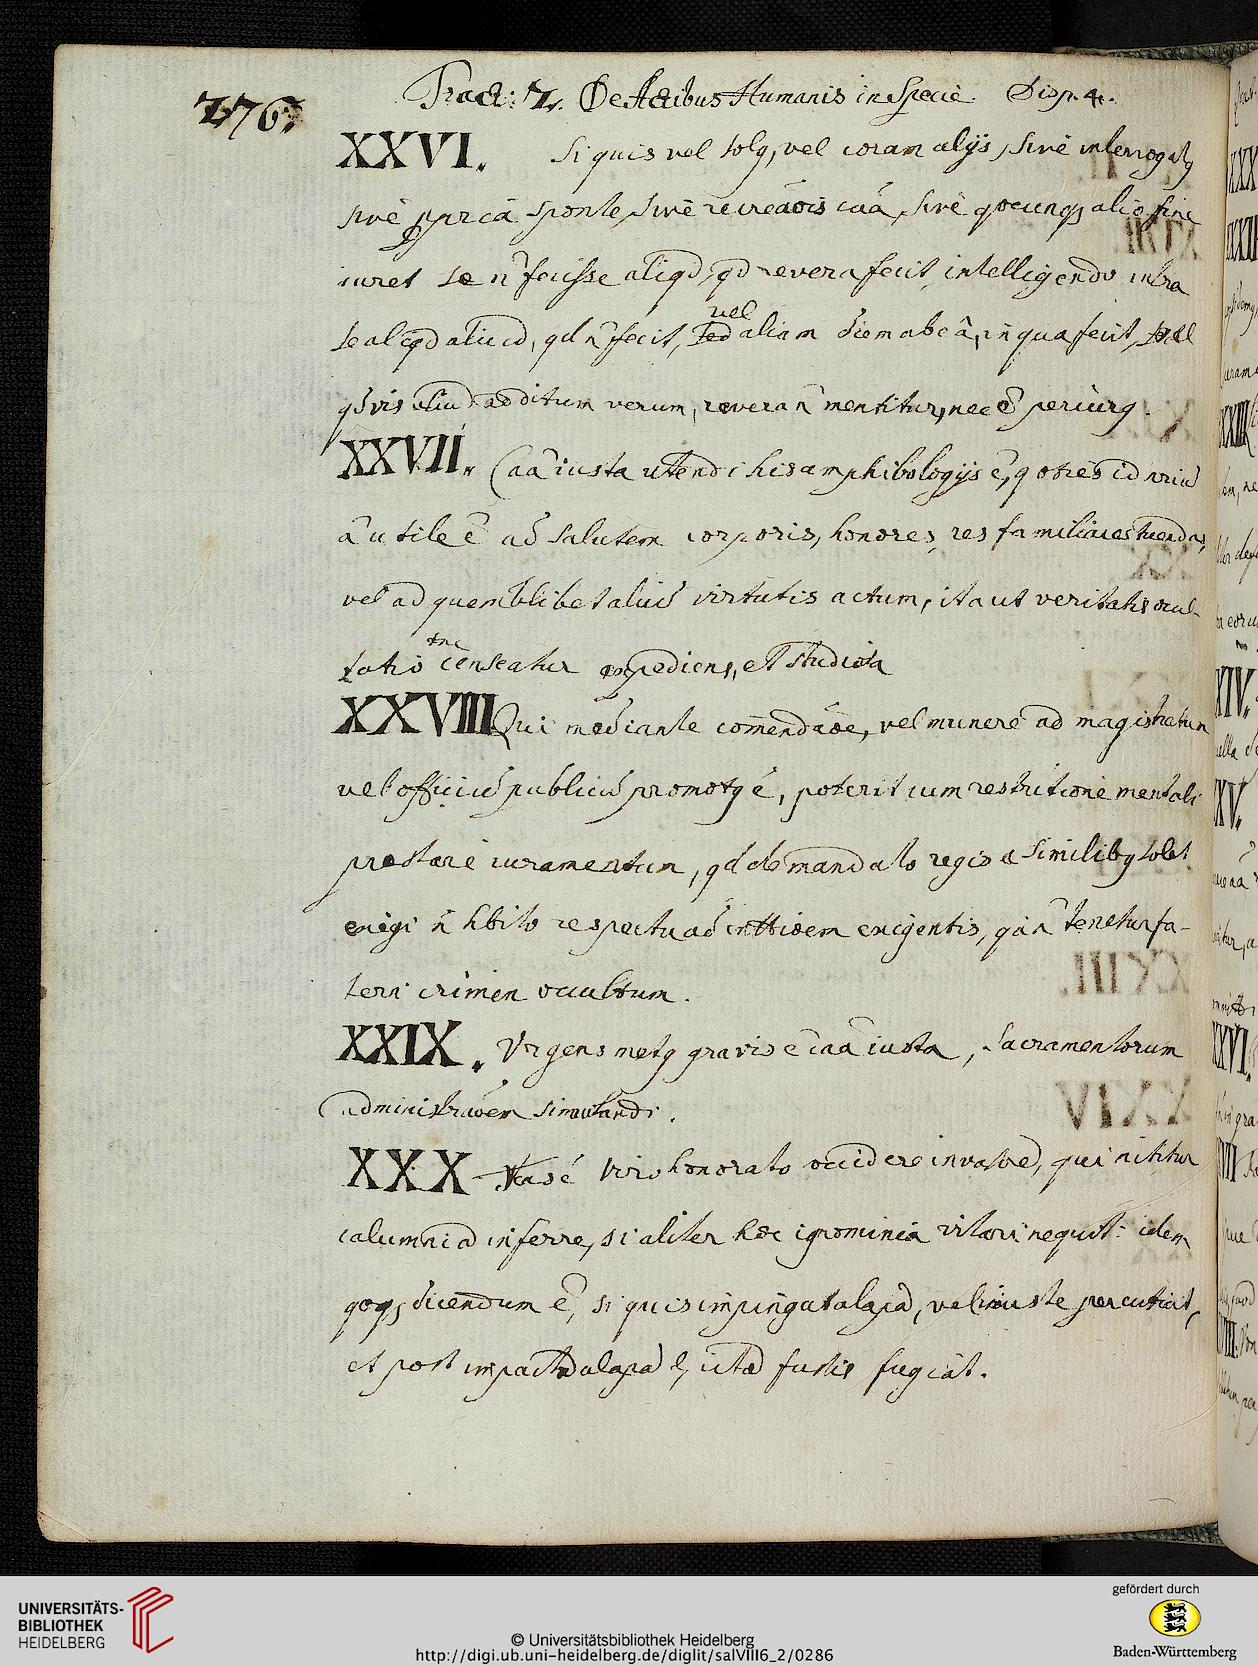 276.
Tract: 2. De Actibus Humanis in Specie Disp. 4.
XXVI. Si quis vel solq, vel coram alijs, sive interrogatq
sivè pprcâ sponte, sivè recreaõis caâ, sivè qocunqȝ alio fine
iuret se ñ fecisse aliqd, qd revera fecit, intelligendo intra
se alqd aliud, qd ñ fecit, sed vel aliam diem ab eâ, in qua fecit, vel
qdvis aliud additum verum, revera ñ mentitur, nec ẽ periurq.
XXVII. Caã iusta utendi his amphibologijs ẽ, qoties id nriũ
ã utile ẽ ad salutem corporis, honores, res familiares tuendas,
vel ad quemlibet aliũ virtutis actum, ita ut veritatis ocul-
tatio tnc censeatur expediens, et studiosa
XXVIII Qui mediante comendãoe, vel munere ad magistratum
vel officiũ publicũ promotq ẽ, poterit cum restrictione mentali
prestare iuramentum, qd de mandato regis a similibq solet
exigi ñ hbito respectu ad inttioem exigentis, qia ñ tenetur fa-
teri crimen occultum.
XXIX. Urgens metq gravis ẽ caã iusta, Sacramentorum
administraõem simulandi.
XXX Fas ẽ viro honorato occidere invasorẽ, qui nititur
calumniã inferre, si aliter hæc ignominia vitari nequit: idem
qoqȝ dicendum ẽ, si quis impingat alapã, vel iniuste percutiat,
et post impactã alapã l, ictũ fustis fugiat.
UNIVERSITÄTS-
BIBLIOTHEK
HEIDELBERG
© Universitätsbibliothek Heidelberg
http://digi.ub.uni-heidelberg.de/diglit/salVIII6_2/0286
gefördert durch
Baden-Württemberg